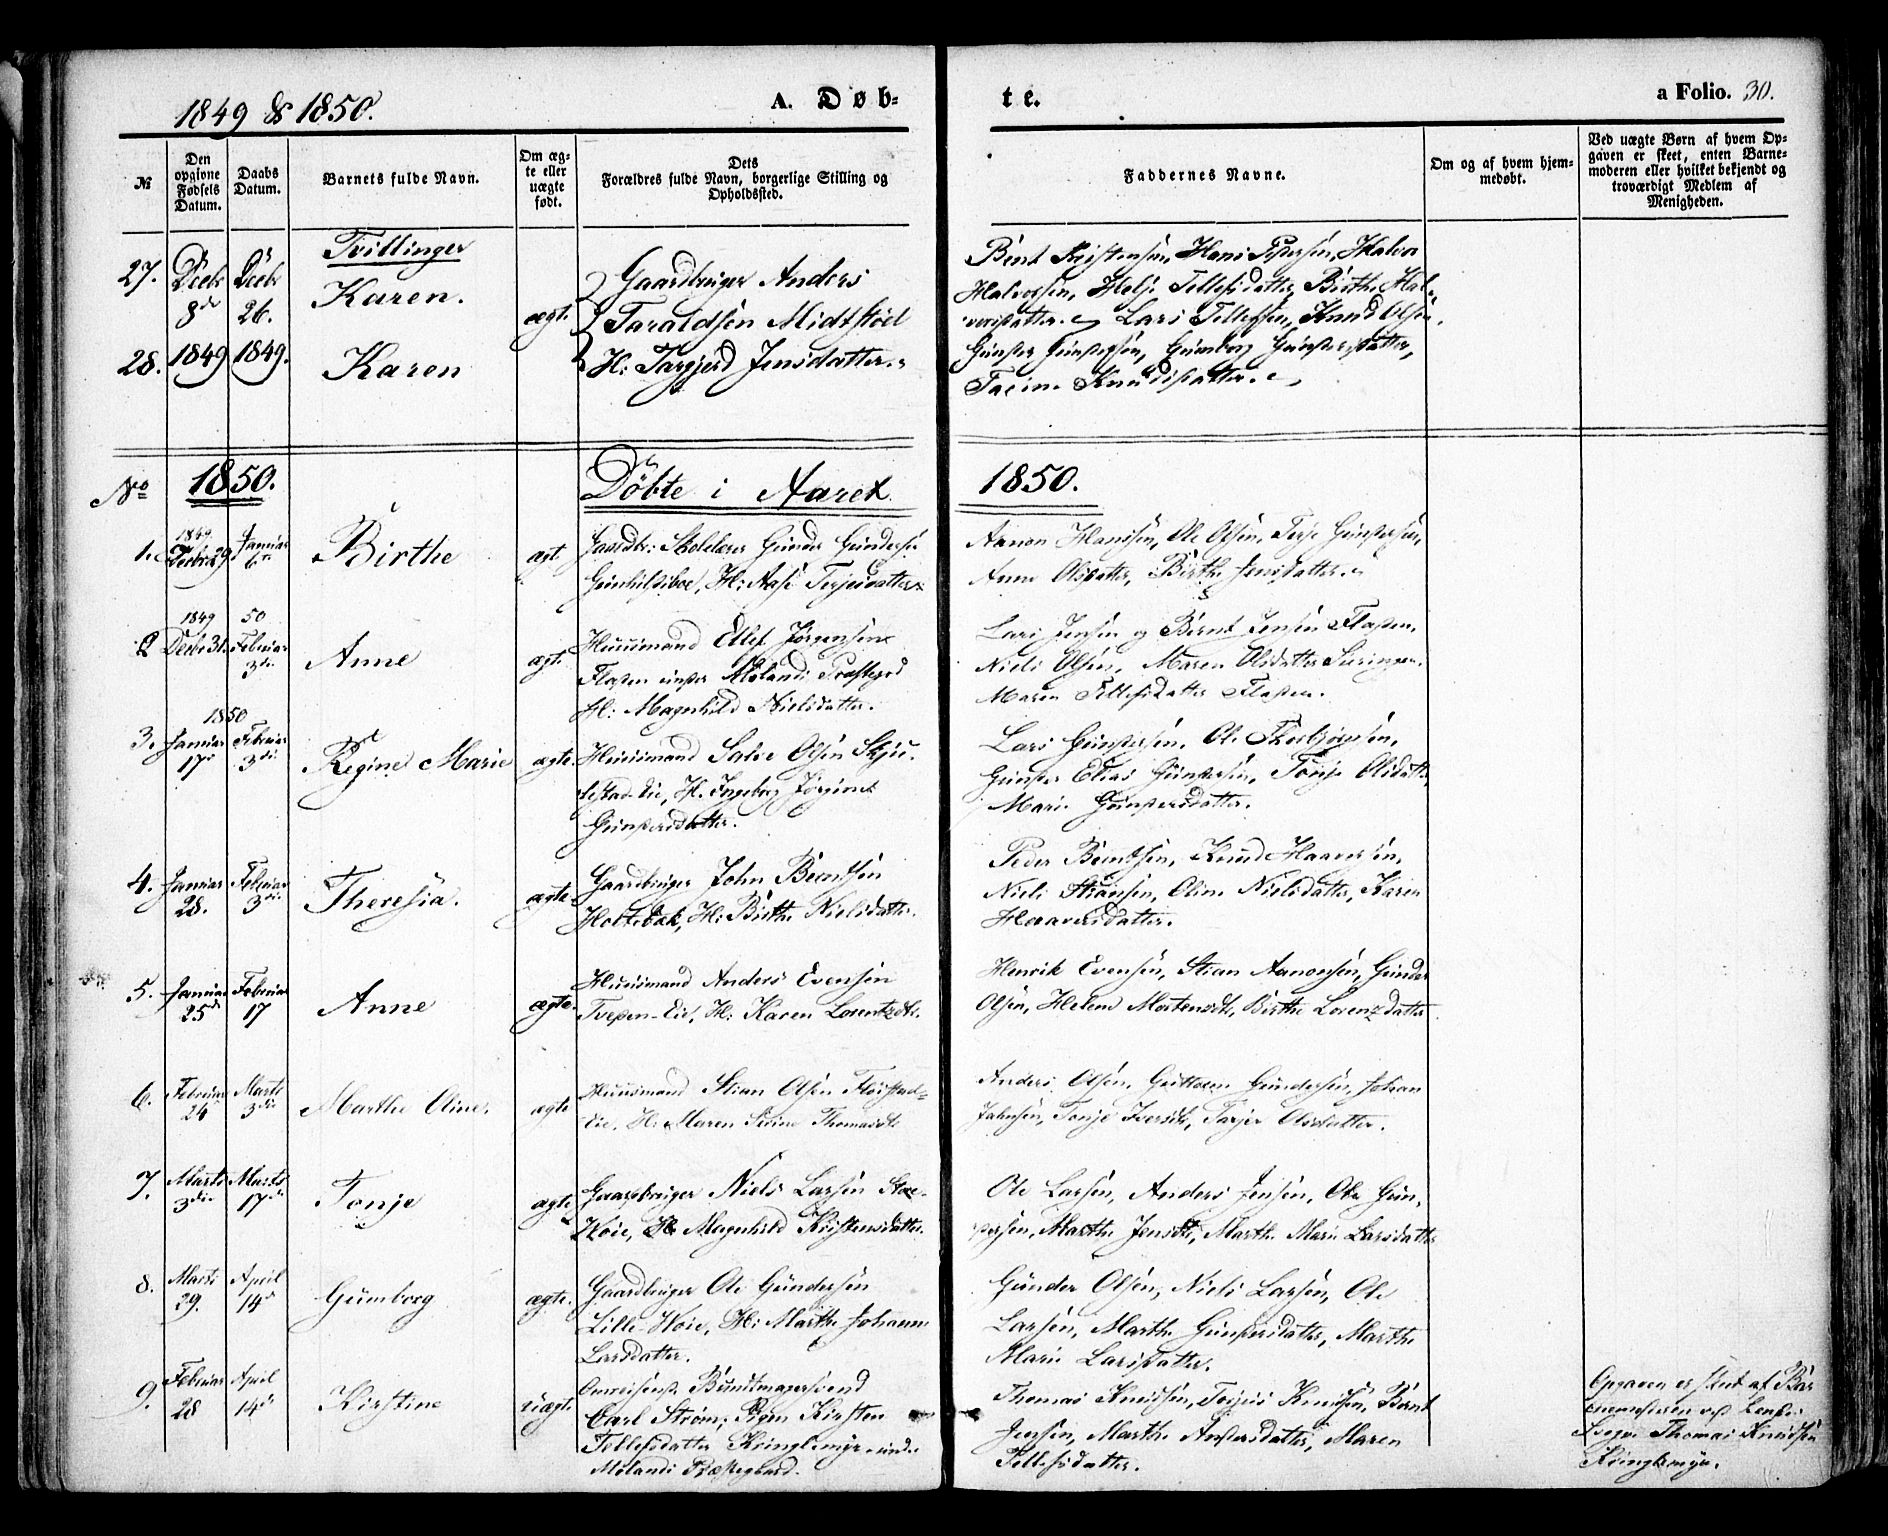 1849 & 1850.
A. Døb-
te.
a Folio. 30.
№
Den opgivne Fødsels Datum.
Daabs Datum.
Barnets fulde Navn.
Om æg-te eller uægte født.
Dets
Forældres fulde Navn, borgerlige Stilling og
Opholdssted.
Faddernes Navne.
Om og af hvem hjem-
medøbt.
Ved uægte Børn af hvem Op-
gaven er skeet, enten Barne-
moderen eller hvilket bekjendt og
troværdigt Medlem af
Menigheden.
Tvillinger
27. Decbr 8de 1849 Decbr 26. 1849. Karen. ægt.
28. Karen
Gaardbruger Anders
Taraldsen Midtstød
H: Targjerd Jensdatter.
Hans Pedersen, Halvor
Halvorsen, Helje Tellefsdatter, Birthe Hal-
vorsdatter. Lars Tellefsen, Knud Olsen,
Gunder Gundersen, Gumborg Gundersdatter,
Knudsdatter.
No 1850. Døbte i Aaret 1850.
1. 1849 Decbr 29 Januar 6te Birthe ægt.
Gunder Gundersen
H: Aase Terjesdatter
Aanon Hansen, Ole Olsen, Terje Gundersen,
Anne Olsdatter, Birthe Jensdatter.
2 1849 Decbr 31. 50 Februar 3die Anne ægt.
Huusmand Ellef Jørgensen
Flaten under Molands Præstegrd
H: Magnhild Nielsdatter.
Lars Jensen og Bernt Jensen Flaten,
Niels Olsen, Maren Olsdatter
Maren Tellefsdatter Flaten.
3. 1850 Januar 17de Februar 3die Regine Marie ægte
Huusmand Salve Olsen
H. Ingeborg Jørgine
Gundersdatter.
Lars Gundersen, Ole Thorbjørnsen,
Gunder Elias Gundersen, Tonje Olsdatter
Marie Gundersdatter.
4. Januar 28. Februar 3die Theresia. ægte
Gaardbruger John Berntsen
Holtebak, H: Birthe Nielsdatter.
Peder Berntsen, Knud Haaversen,
Niels Stiansen, Oline Nielsdatter, Karen
Haaversdatter.
5. Januar 25de Februar 17 Anne ægte
Huusmand Anders Evensen
Tveten-Eie, H: Karen Lorentzdtr.
Henrik Evensen, Stian Aanonsen, Gunder
Olsen, Helene Mortensdtr, Birthe Lorenzdatter
6. Februar 24 Marts 3die Marthe Oline. ægte
Huusmand Stian Olsen Fløistad-
Eie. H: Maren Sivine Thomasdtr
Anders Olsen, Guttorm Gundersen, Johan
Jahnsen, Tonje Iversdtr, Tarjer Olsdatter.
7. Marts 3die Marts 17de Tonje ægte
Gaardbruger Niels Larsen Store-
Høie, H: Magnhild Kristensdatter.
Ole Larsen, Anders Jensen, Ole Gun-
dersen, Marthe Jensdtr, Marthe Marie Larsdatter
8. Marts 29. April 14de Gumborg ægte.
Gaardbruger Ole Gundersen
Lille-Høie, H: Marthe Johanne
Larsdatter.
Gunder Olsen, Niels Larsen, Ole
Larsen, Marthe Gundersdatter, Marthe
Marie Larsdatter.
9. Februar 28 April 14de Kirstine uægt.
Omreisende Bundtmagersvend
Carl Strøm; Pigen Kirsten
Tellefsdatter Kringlemyr under
Molands Præstegaard.
Thomas Knudsen, Knudsen, Bernt
Jensen, Marthe Andersdatter, Maren
Tellefsdatter.
Opgaven er skeet af Bar-
nemoderen
Svoger Thomas Knudsen
Kringlemyr.